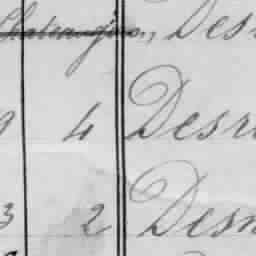 Des
9 4 Desr
3 2 Des